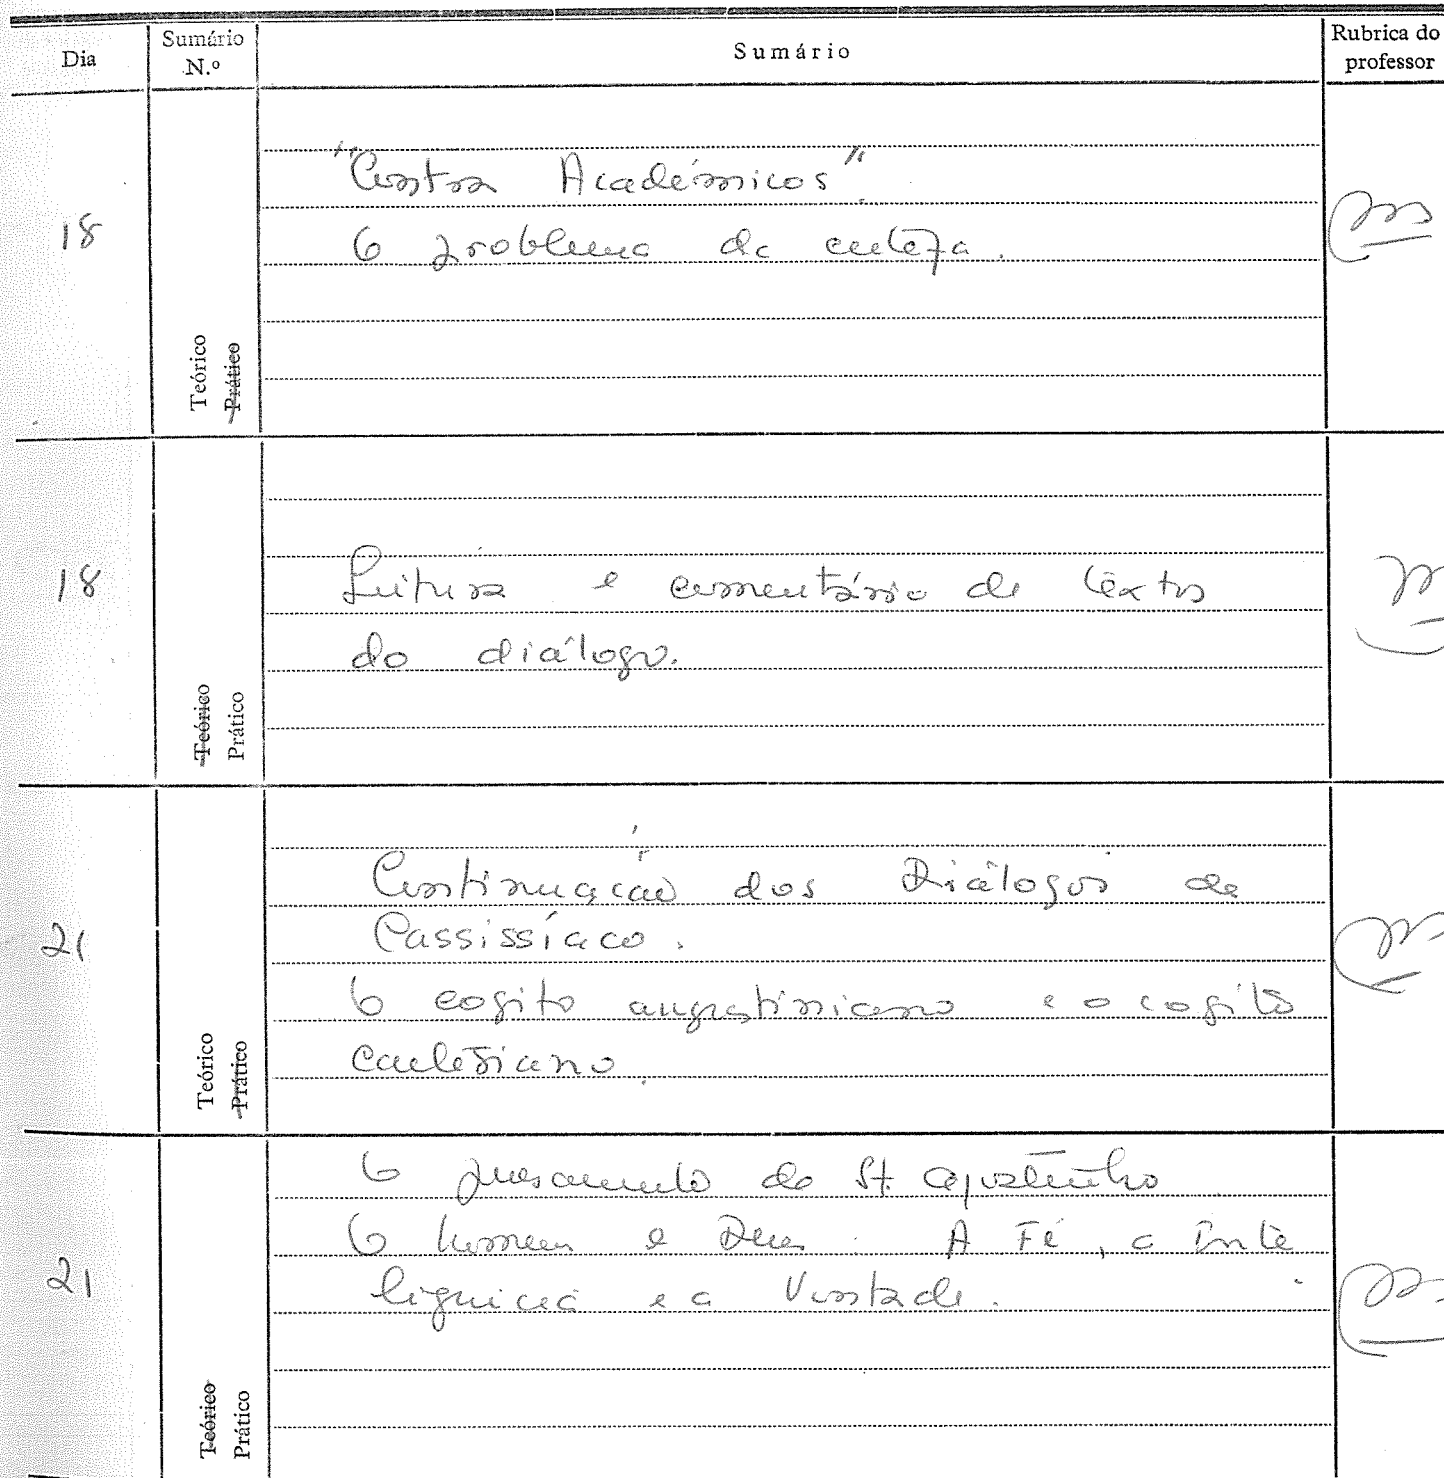 Dia Sumário N.º Sumário Rubrica do professor
18
"Contra Académicos".
O problema da certeza.
Teórico
Prático
18
Leitura e comentário de textos
do diálogo.
Teórico
Prático
21
Continuação dos Diálogos de
Cassissíaco.
O cogito augustiniano e o cogito
cartesiano.
Teórico
Prático
21
O pensamento de St. Agostinho
O homem e Deus. A Fé, a Inte
ligência e a Vontade.
Teórico
Prático